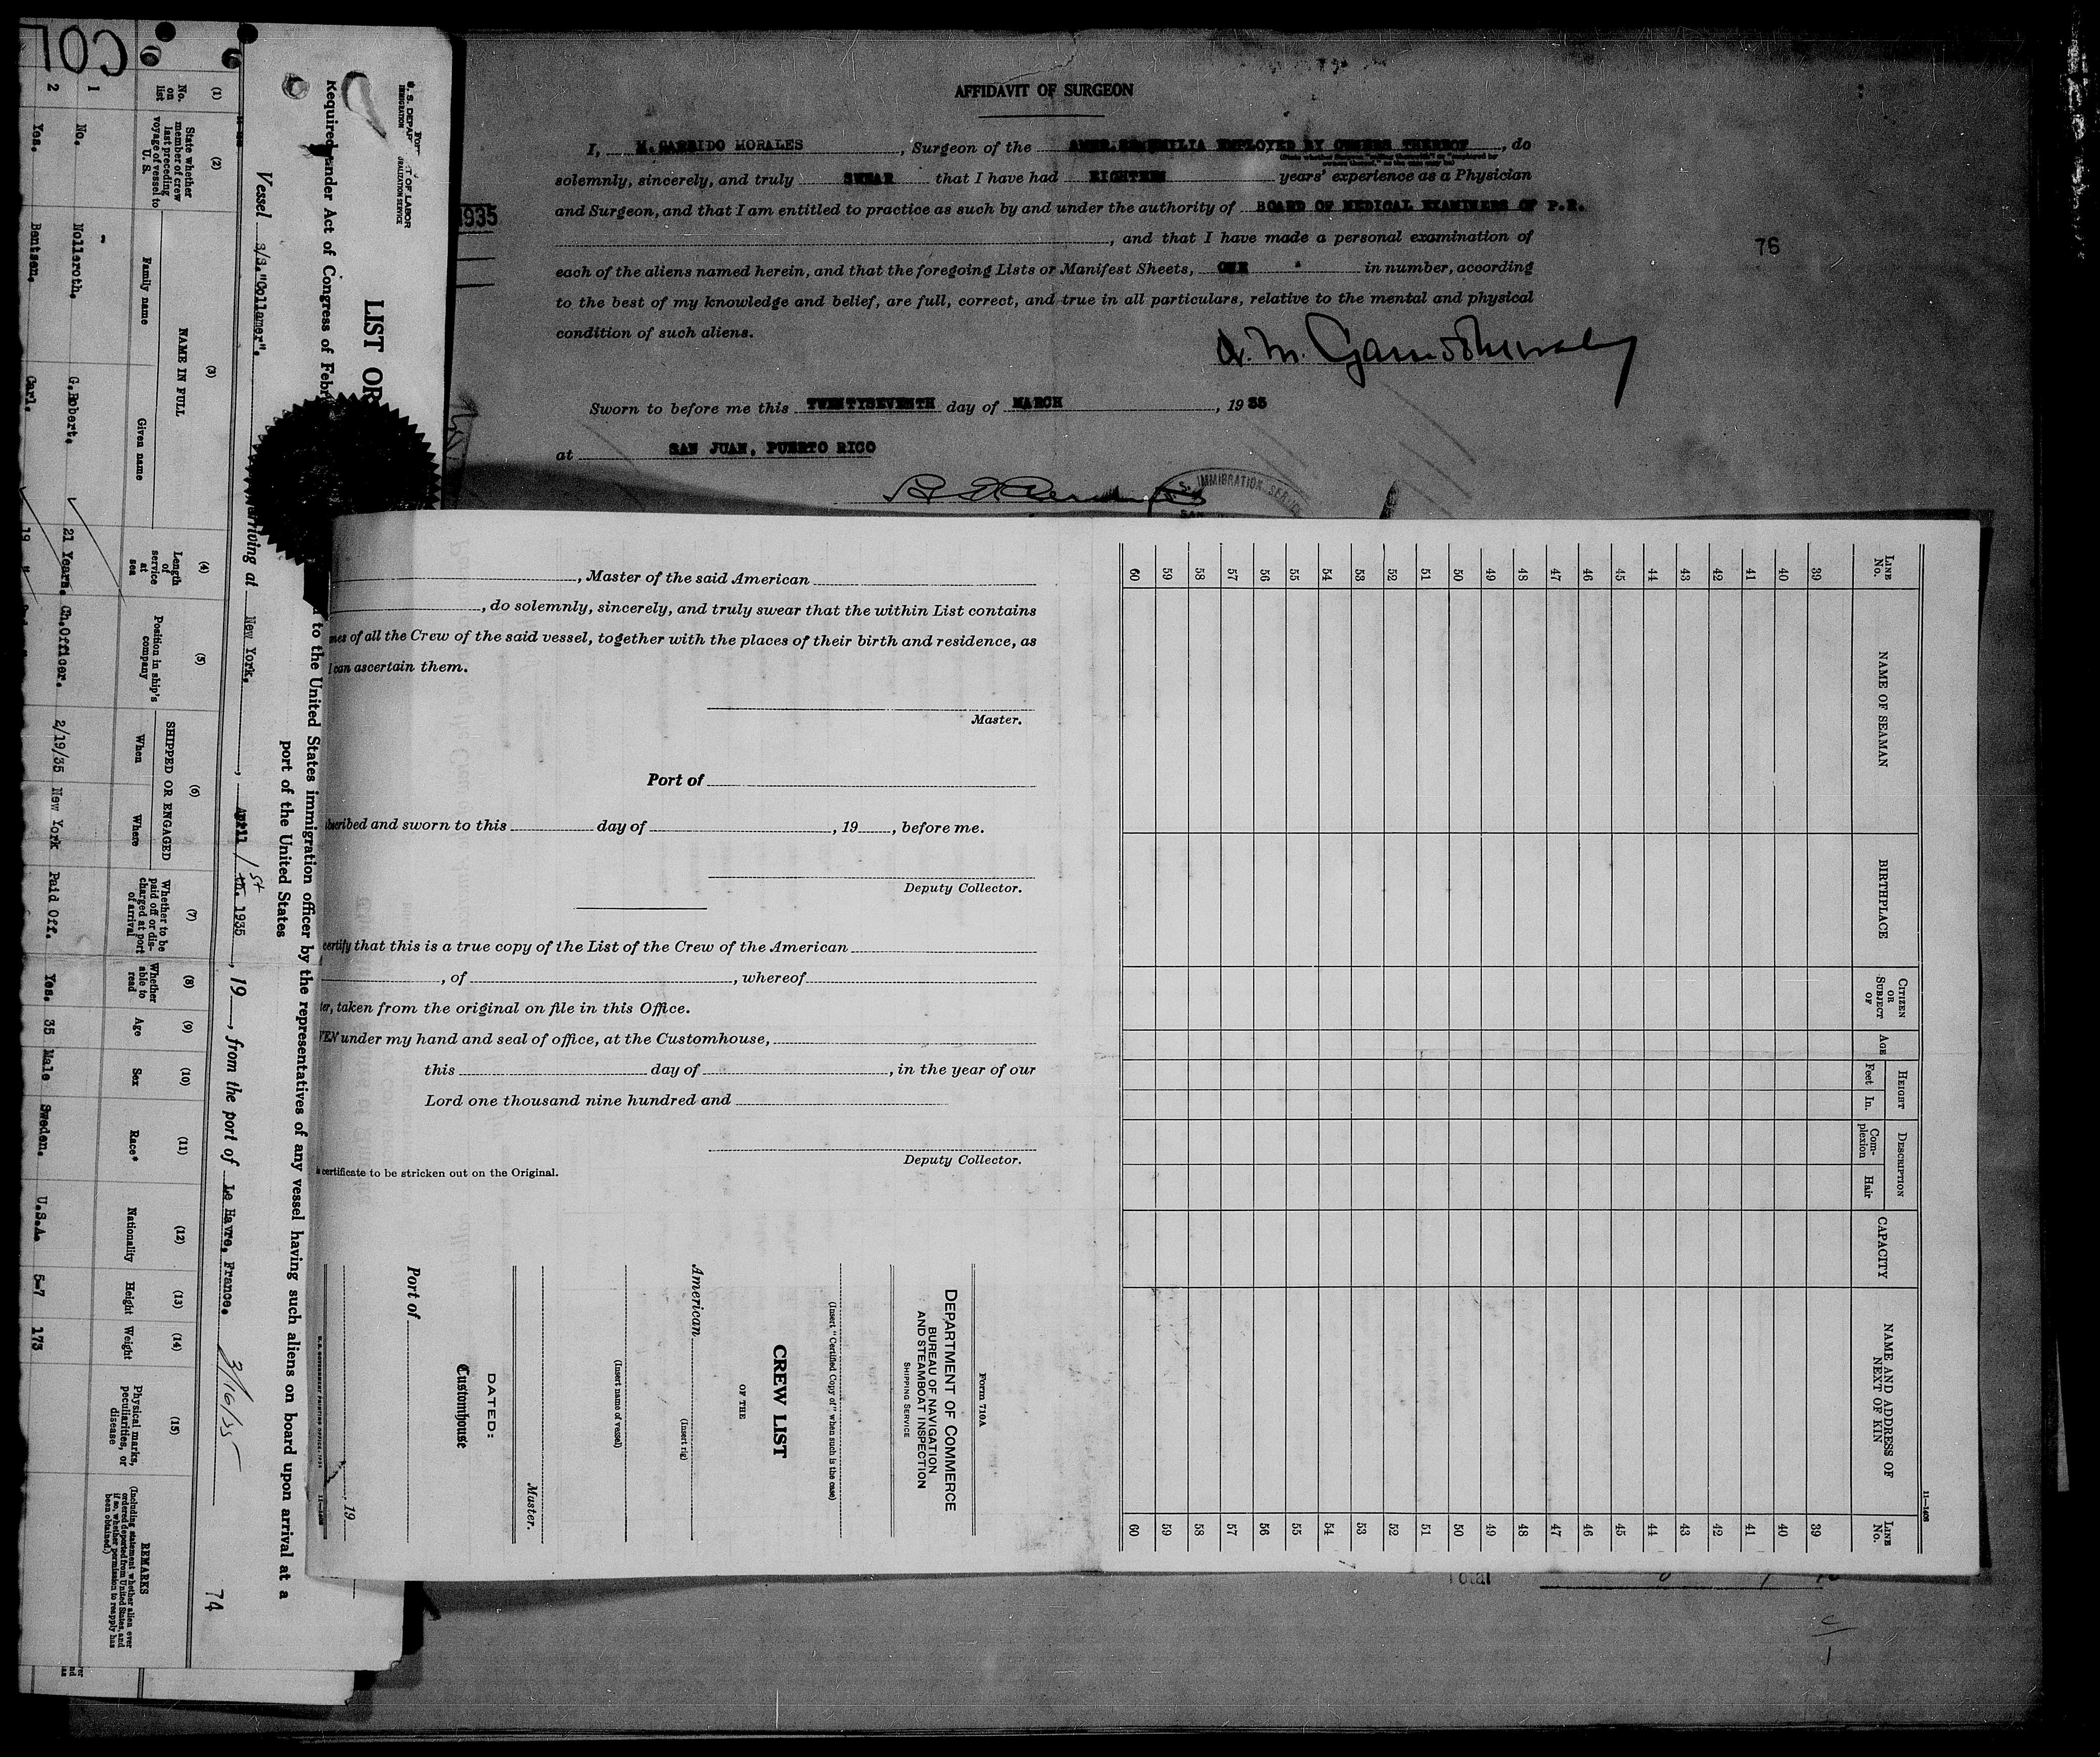 AFFIDAVIT OF SURGEON
I, M. GARRIDO MORALES, Surgeon of the EMPLOYED BY OWNERS THEREOF, do
solemnly, sincerely, and truly SWEAR that I have had EIGHTEEN years' experience as a Physician
and Surgeon, and that I am entitled to practice as such by and under the authority of BOARD OF MEDICAL EXAMINERS OF P.R.
, and that I have made a personal examination of
each of the aliens named herein, and that the foregoing Lists or Manifest Sheets, ONE in number, according
to the best of my knowledge and belief, are full, correct, and true in all particulars, relative to the mental and physical
condition of such aliens.
Sworn to before me this TWENTYSEVENTH day of MARCH, 1935
at SAN JUAN, PUERTO RICO
IMMIGRATION SERVICE
76
1935
Total
, Master of the said American
, do solemnly, sincerely, and truly swear that the within List contains
of all the Crew of the said vessel, together with the places of their birth and residence, as
I can ascertain them.
Master.
Port of
and sworn to this day of , 19 , before me.
Deputy Collector.
certify that this is a true copy of the List of the Crew of the American
, of , whereof
, taken from the original on file in this Office.
under my hand and seal of office, at the Customhouse,
this day of , in the year of our
Lord one thousand nine hundred and
Deputy Collector.
certificate to be stricken out on the Original.
Form 710A
DEPARTMENT OF COMMERCE
BUREAU OF NAVIGATION
AND STEAMBOAT INSPECTION
SHIPPING SERVICE
(Insert "Certified Copy of" when such is the case)
CREW LIST
OF THE
American
(Insert rig)
(Insert name of vessel)
Master.
DATED:
Customhouse
Port of
, 19
11—1406
LINE No. NAME OF SEAMAN BIRTHPLACE CITIZEN OR SUBJECT OF AGE HEIGHT Feet In. DESCRIPTION Complexion Hair CAPACITY NAME AND ADDRESS OF NEXT OF KIN LINE No.
39 39
40 40
41 41
42 42
43 43
44 44
45 45
46 46
47 47
48 48
49 49
50 50
51 51
52 52
53 53
54 54
55 55
56 56
57 57
58 58
59 59
60 60
U. S. DEPAR T OF LABOR
IMMIGRATION
LIST OR
Required under Act of Congress of Febr to the United States immigration officer by the representatives of any vessel having such aliens on board upon arrival at a
port of the United States
Vessel S/S. "Collamer". arriving at New York. , April 1st th. 1935 , 19 , from the port of Le Havre, France. 3/16/35
74
COL
(1) No. on list
(2) State whether member of crew last preceding voyage of vessel to U. S.
(3) NAME IN FULL Family name Given name
(4) Length of service at sea
(5) Position in ship's company
(6) SHIPPED OR ENGAGED When Where
(7) Whether to be paid off or discharged at port of arrival
(8) Whether able to read
(9) Age
(10) Sex
(11) Race*
(12) Nationality
(13) Height
(14) Weight
(15) Physical marks, peculiarities, or disease
REMARKS
(Including statement whether alien ever ordered deported from United States, and if so, whether permission to reapply has been obtained.)
1 No. Nolleroth. G.Robert. 21 Years. Ch.Officer. 2/19/35 New York Paid Off. Yes. 35 Male Sweden. U.S.A. 5-7 173
2 Yes. Bentsen. Carl. 19 "